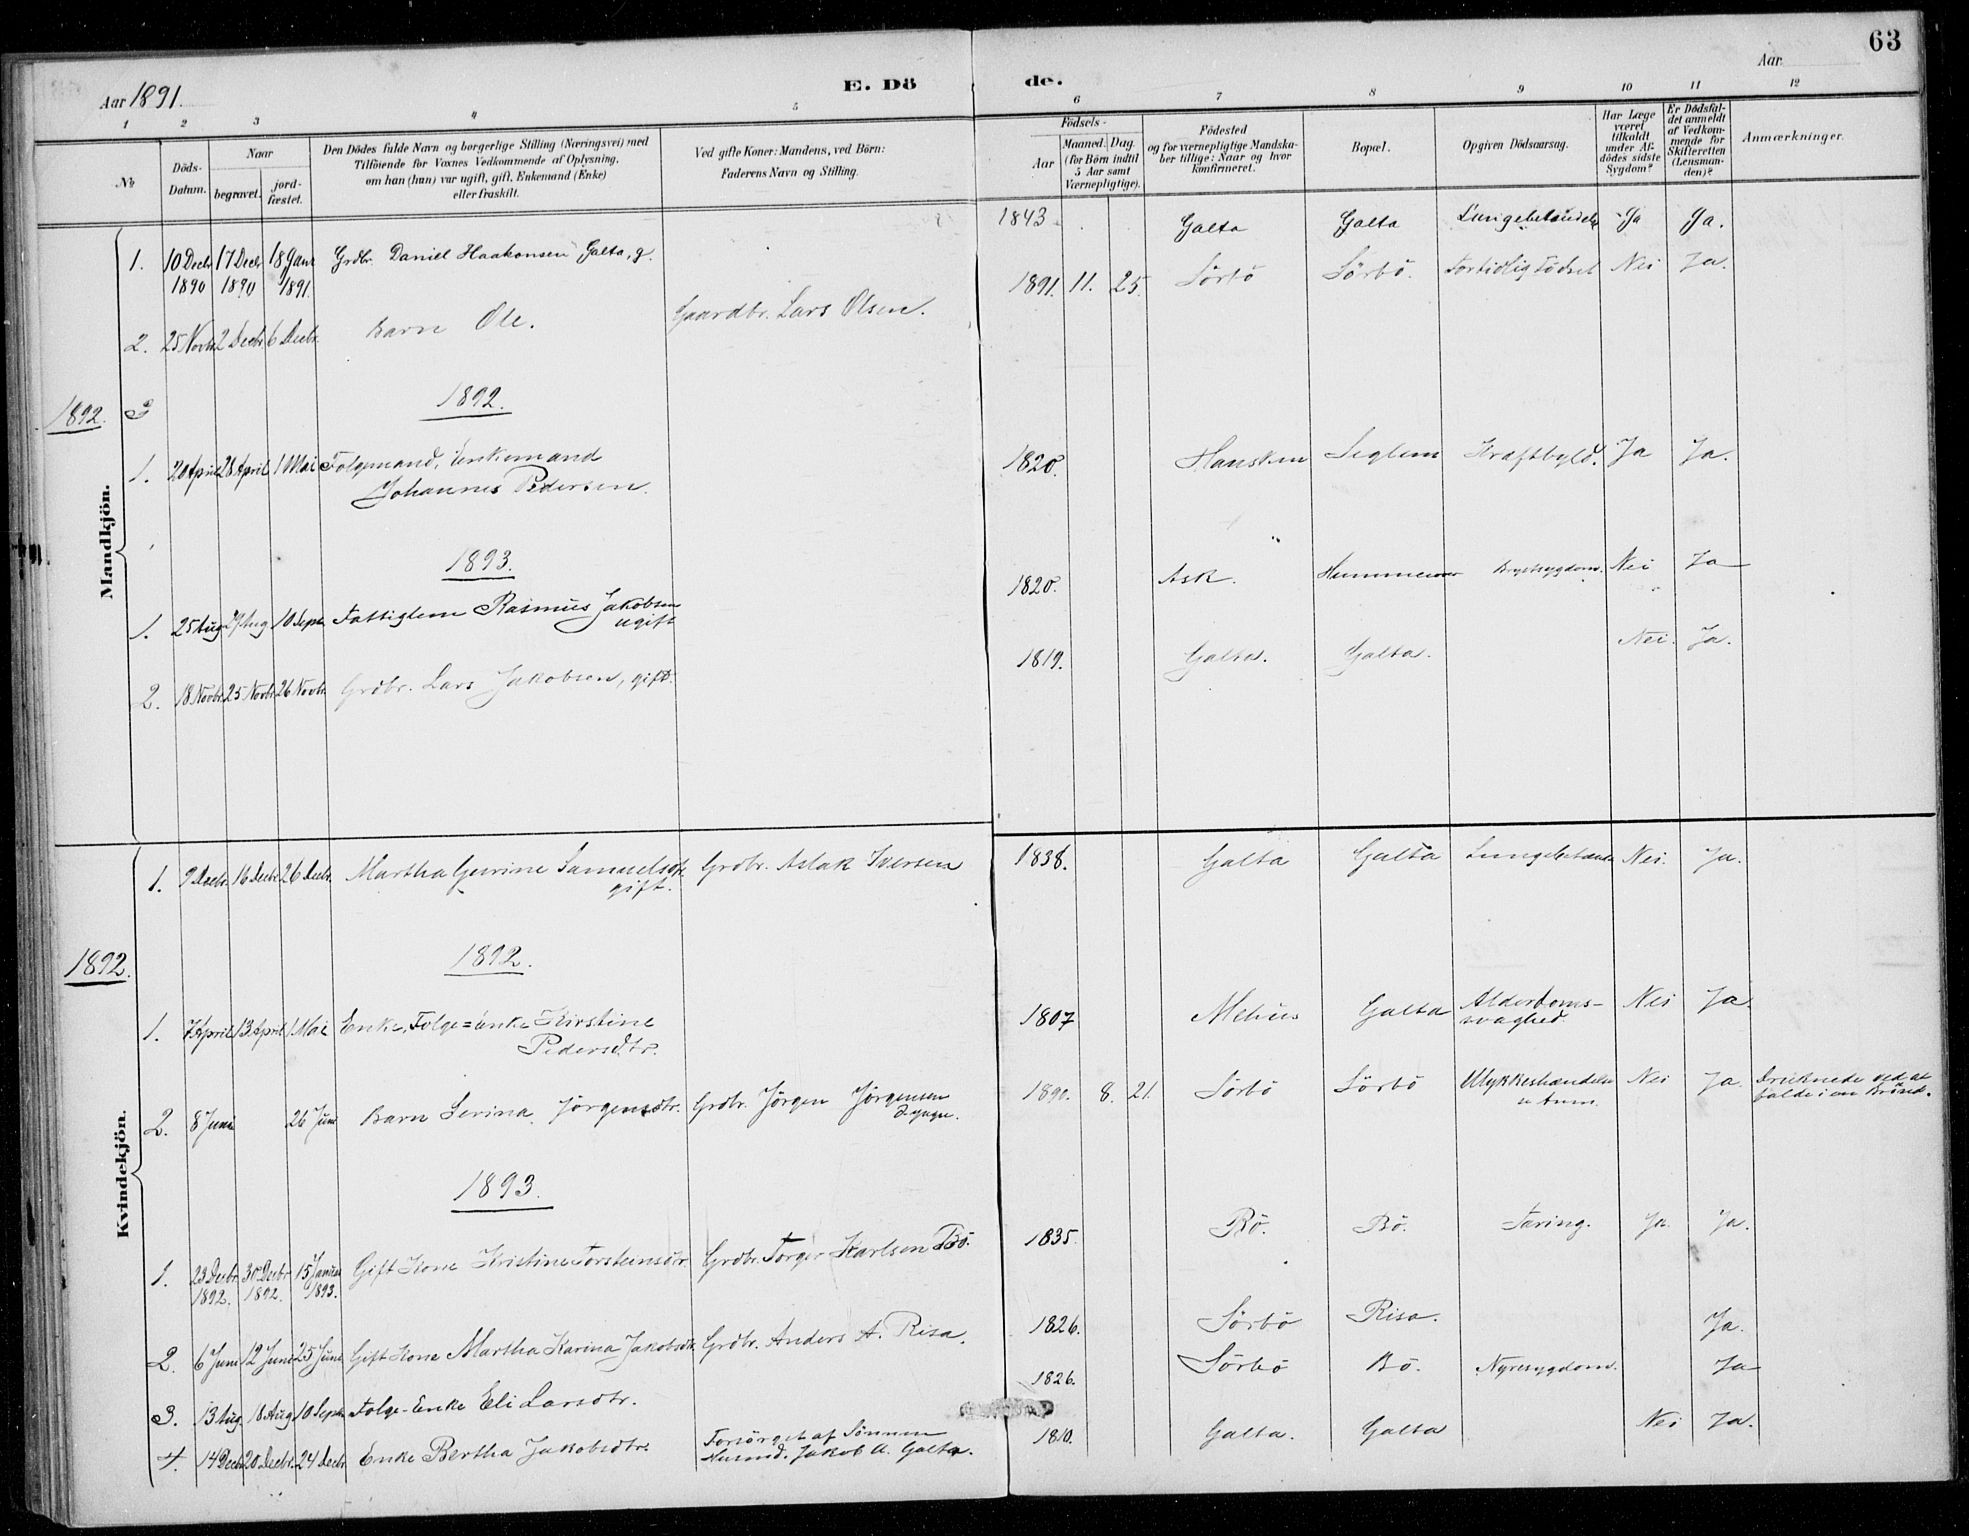 63
Aar 1891.
E. Dö
de.
Aar
1 2 3 4 5 6 7 8 9 10 11 12
No
Döds-Datum.
Naar
begravet.
jord-fæstet.
Den Dödes fulde Navn og borgerlige Stilling (Næringsvei) med
Tilföiende for Voxnes Vedkommende af Oplysning,
om han (hun) var ugift, gift, Enkemand (Enke)
eller fraskilt.
Ved gifte Koner: Mandens, ved Börn:
Faderens Navn og Stilling.
Födsels-
Aar
Maaned. Dag.
(for Börn indtil
5 Aar samt
Værnepligtige).
Födested
og for værnepligtige Mandska-
ber tillige: Naar og hvor
konfirmeret.
Bopæl.
Opgiven Dödsaarsag.
Har Læge
været
tilkaldt
under Af-
dödes sidste
Sygdom?
Er Dödsfal-
det anmeldt
af Vedkom-
mende for
Skifteretten
(Lensman-
den)?
Anmærkninger.
Mandkjön.
1. 10 Decbr 1890 17 Decbr 1890 18 Janr 1891. Grdbr. Daniel Haakonsen Galta, g. 1843 Galta Galta Lungebetændelse Ja Ja.
2. 25 Novbr 2 Decbr 6 Decbr. Barn Ole. Gaardbr. Lars Olsen. 1891. 11. 25. Sörbö Sörbö. Fortidlig Födsel Nei Ja.
1892. 3
1892.
1. 20 April 28 April 1 Mai Folgemand, Enkemand
Johannes Pedersen. 1820. Hausken Seglem Kraftbyld. Ja Ja.
1893.
1. 25 Aug 29 Aug 10 Septr. Fattiglem Rasmus Jakobsen
ugift 1820. Ask. Brystsygdom. Nei Ja
2. 18 Novbr. 25 Novbr. 26 Novbr. Grdbr. Lars Jakobsen, gift. 1819. Galta. Galta. Nei. Ja.
Kvindekjön.
1. 9 Decbr. 16 Decbr. 26 Decbr. Martha Gurine Samuelsdtr.
gift. Grdbr. Aslak Iversen 1838. Galta Galta Nei. Ja.
1892.
1892.
1. 7 April 13 April 1 Mai Enke, Folge=enke Kirstine
Pedersdtr. 1807 Mehus Galta Alderdoms-
svaghed. Nei Ja
2. 8 Juni 26 Juni Barn Serina Jörgensdtr. Grdbr. Jörgen Jörgensen 1890. 8. 21. Sörbö Sörbö Ulykkeshændelse
Nei Ja. Druknede ved at
falde i en Brönd.
1893.
1. 23 Decbr. 1892. 30 Decbr 1892. 15 Januar 1893. Gift Kone Kristine Torsteinsdtr. Grdbr. Torger Karlsen Bö. 1835. Bö. Bö. Tæring. Ja. Ja.
2. 6 Juni 12 Juni 25 Juni Gift Kone Martha Karina Jakobsdtr. Grdbr. Anders A. Risa. 1826. Sörbö Risa. Ja.
3. 13 Aug. 18 Aug 10 Septr. Folge-Enke Eli Larsdtr. 1826. Sörbö Bö. Nyresygdom. Ja
4. 14 Decbr. 20 Decbr. 24 Decbr. Enke Bertha Jakobsdtr. Forsörget af Sönnen
Husmd. Jakob A. Galta. 1810. Galta. Galta Nei Ja.